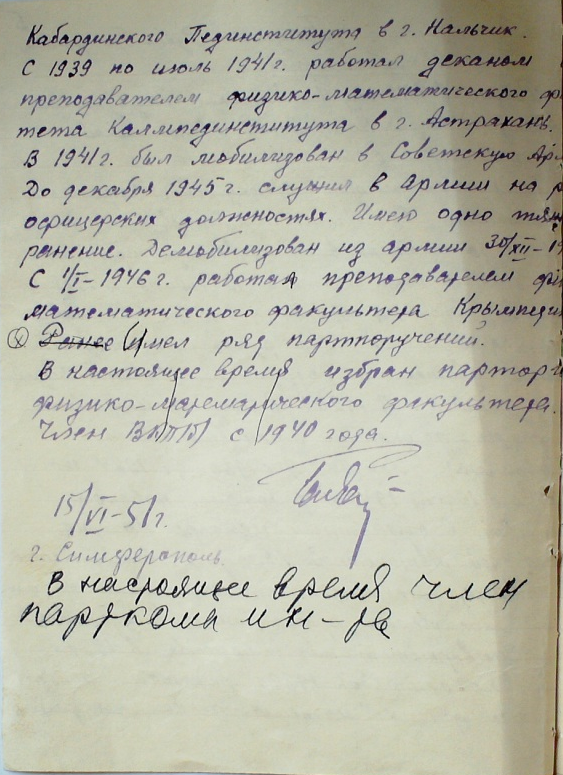 Кабардинского Пединститута в г. Нальчик.
С 1939 по июль 1941 г. работал деканом
преподавателем физико-математического фа
тета Калмпединститута в г. Астрахань.
В 1941 г. был мобилизован в Советскую Арм
До декабря 1945 г. служил в армии на
офицерских должностях. Имею одно тяж
ранение. Демобилизован из армии 30/XII-19
С 1/I-1946 г. работал преподавателем физ
математического факультета Крымпедин
Ранее Имел ряд партпоручений.
В настоящее время избран парторг
физико-математического факультета.
Член ВКП(б) с 1940 года.
15/VI-51 г.
г. Симферополь.
В настоящее время член
парткома ин-та